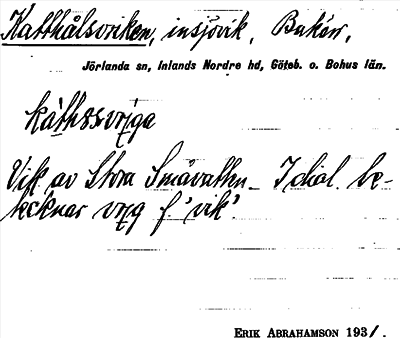 Katthålsvriken, insjövik, Bakärr,
Jörlanda sn, Inlands Nordre hd, Göteb. o. Bohus län.
Vik av Stora Småvattn_ I dial. be-
tecknar vrig f. 'vik'
ERIK ABRAHAMSON 193/.